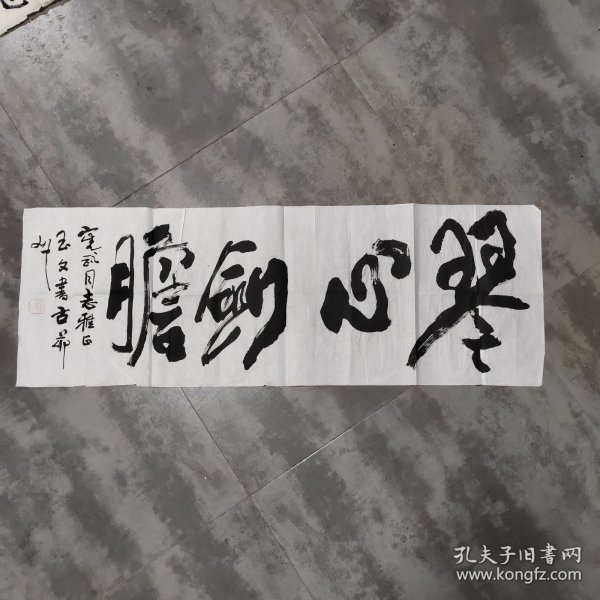 琴心劍膽
同志雅正
玉文書古
孔夫子旧書网
www.kongfz.com